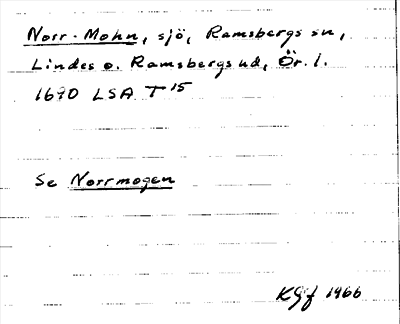 Norr-Mohn, sjö, Ramsbergs sn,
Lindes o. Ramsbergs hd, Ör. l.
1690 LSA T15
Se Norrmogen
KGf 1966